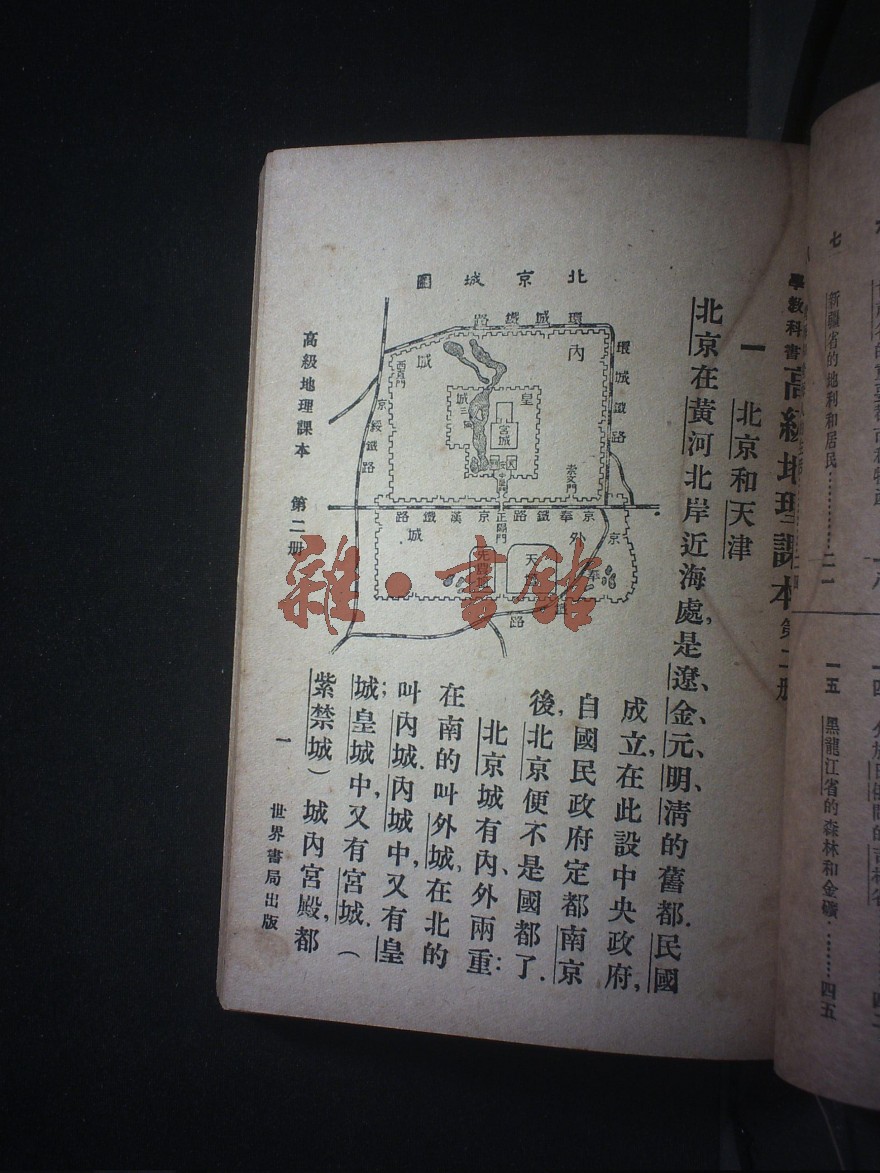 七
新疆省的地利和居民…………二一
一五 黑龍江省的森林和金礦………四五
學教科書高級地理課本第二册
一 北京和天津
北京在黃河北岸近海處,是遼、金、元、明、清的舊都.民國
成立,在此設中央政府,
自國民政府定都南京
後,北京便不是國都了.
北京城有內、外兩重:
在南的叫外城,在北的
叫內城,內城中,又有皇
城;皇城中,又有宮城.(
紫禁城)城內宮殿,都
北京城圖
環城鐵路
環城鐵路
內城
西直門
皇城
三海
宮城
中
崇文門
京綏鐵路
正陽門
京奉鐵路
京漢鐵路
外城
天壇
先農壇
京奉鐵路
高級地理課本 第二册
一
世界書局出版
雜·書館